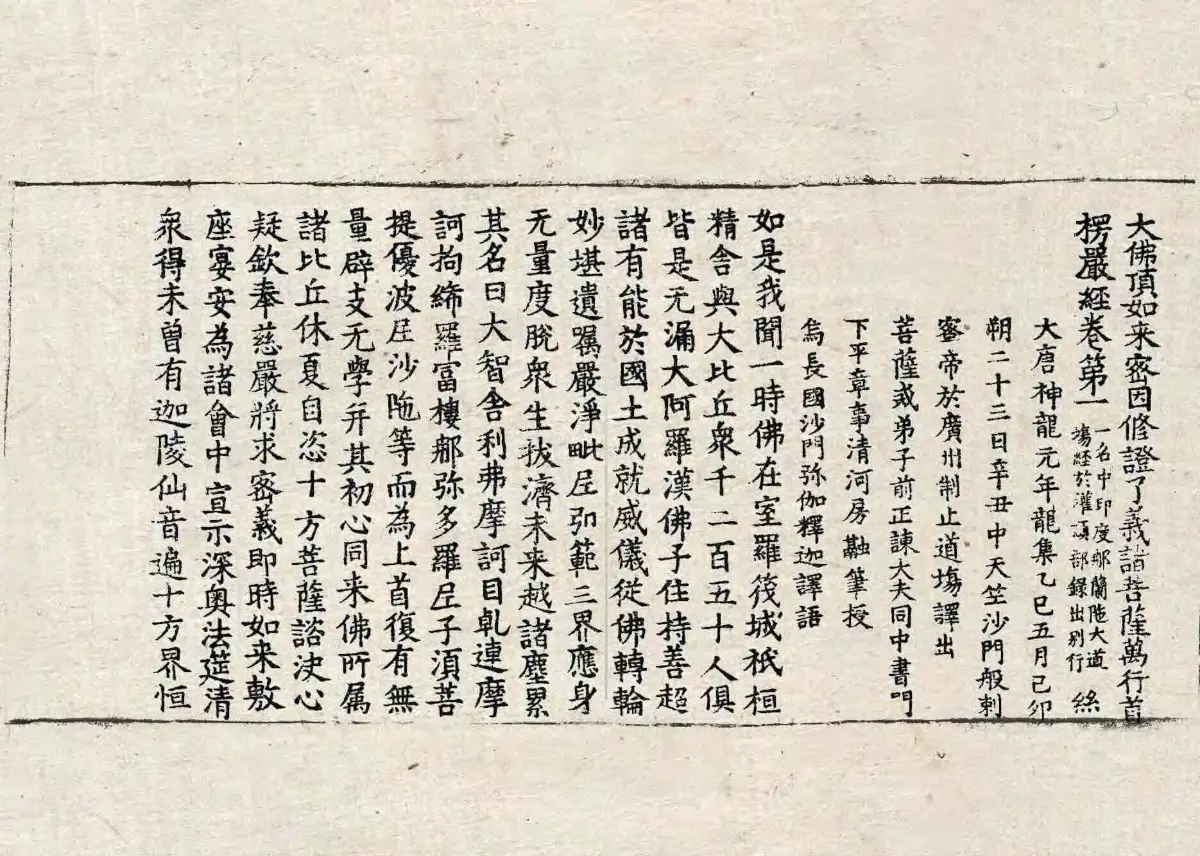 大佛頂如来密因修證了義諸菩薩萬行首
楞嚴經卷第一
一名中印度鄉蘭陁大道
塲経於灌頂部録出别行
絲
大唐神龍元年龍集乙巳五月己卯
朔二十三日辛丑中天竺沙門般剌
蜜帝於廣州制止道塲譯出
菩薩戒弟子前正諫大夫同中書門
下平章事清河房融筆授
烏長國沙門弥伽釋迦譯語
如是我聞一時佛在室羅筏城祇桓
精舍與大比丘衆千二百五十人俱
皆是无漏大阿羅漢佛子住持善超
諸有能於國土成就威儀從佛轉輪
妙堪遺囑嚴淨毗𡰱弘範三界應身
无量度脫衆生拔濟未来越諸塵累
其名曰大智舍利弗摩訶目乹連摩
訶拘絺羅富樓郍弥多羅𡰱子湏菩
提優波𡰱沙陁等而為上首復有無
量辟支无學幷其初心同来佛所属
諸比丘休夏自恣十方菩薩諮決心
疑欽奉慈嚴將求密義即時如来敷
座宴安為諸會中宣示深奥法筵清
衆得未曽有迦陵仙音遍十方界恒